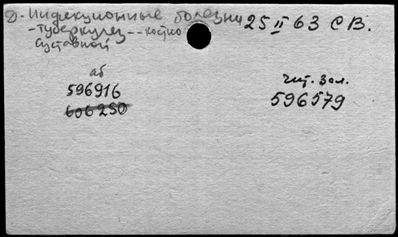 Д- Инфекционные болезни 25 II 63 СВ.
- Туберкулез -- костно
суставной
аб
596916
606250
чит. зал.
596579